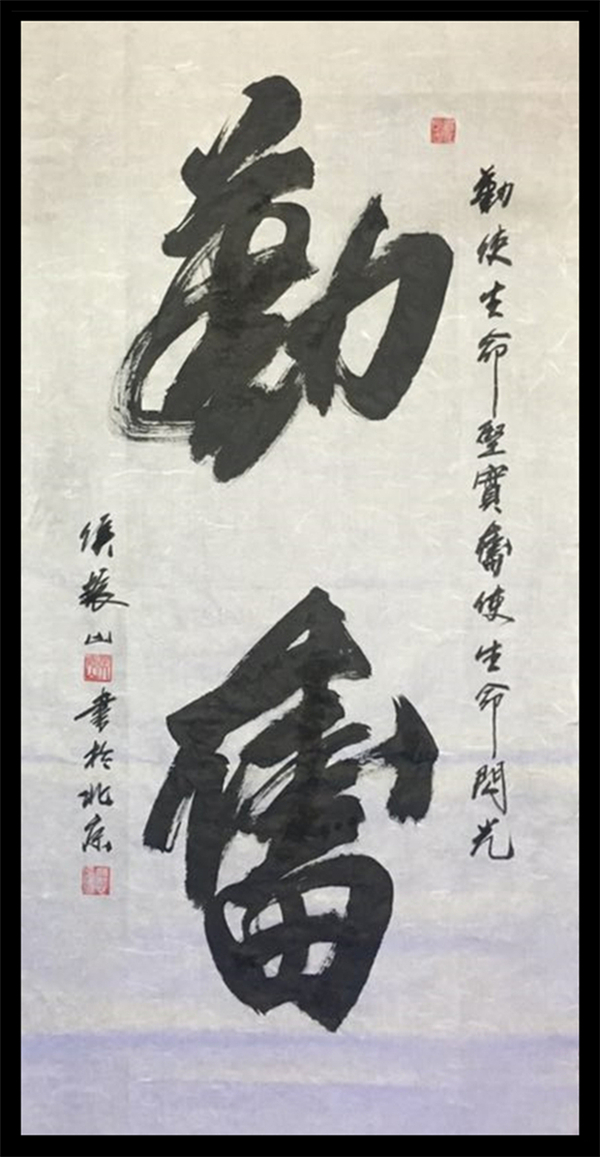 勤使生命堅實奮使生命閃光
勤奮
侯振山書於北京